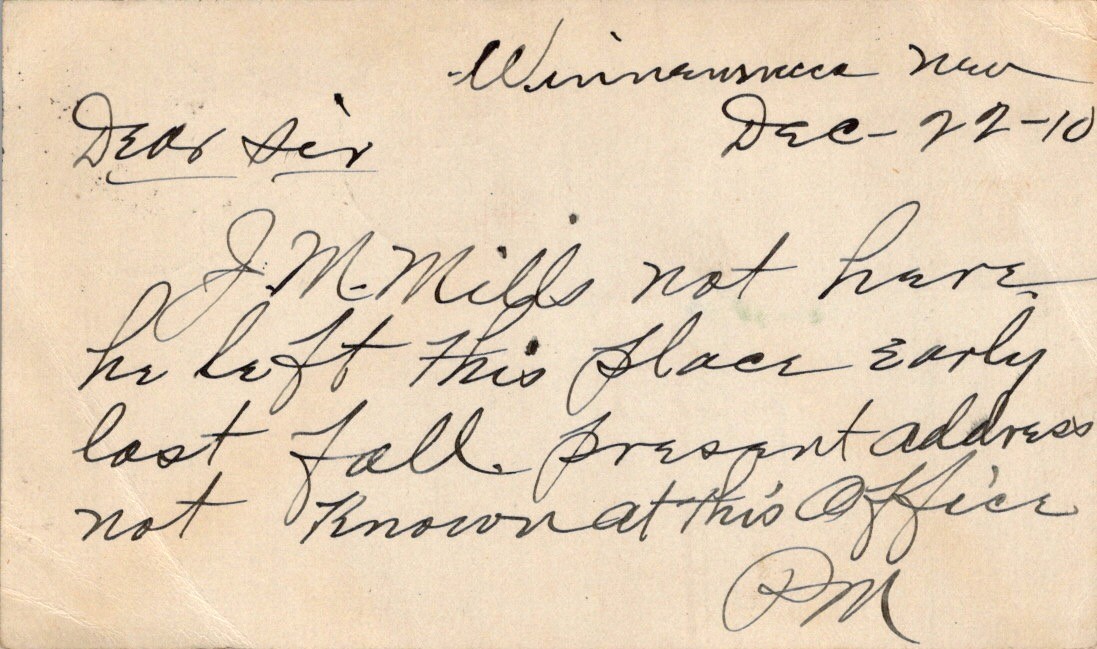 Winnemucca Nev
Dec-22-10
Dear Sir
J.M. Mills not here
he left this place early
last fall. present address
not Known at this Office
PM